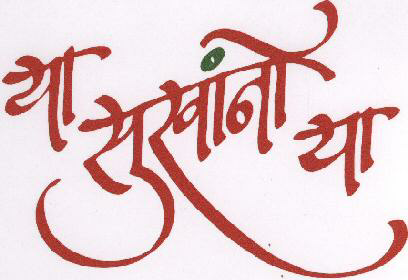 या सुखांनो या